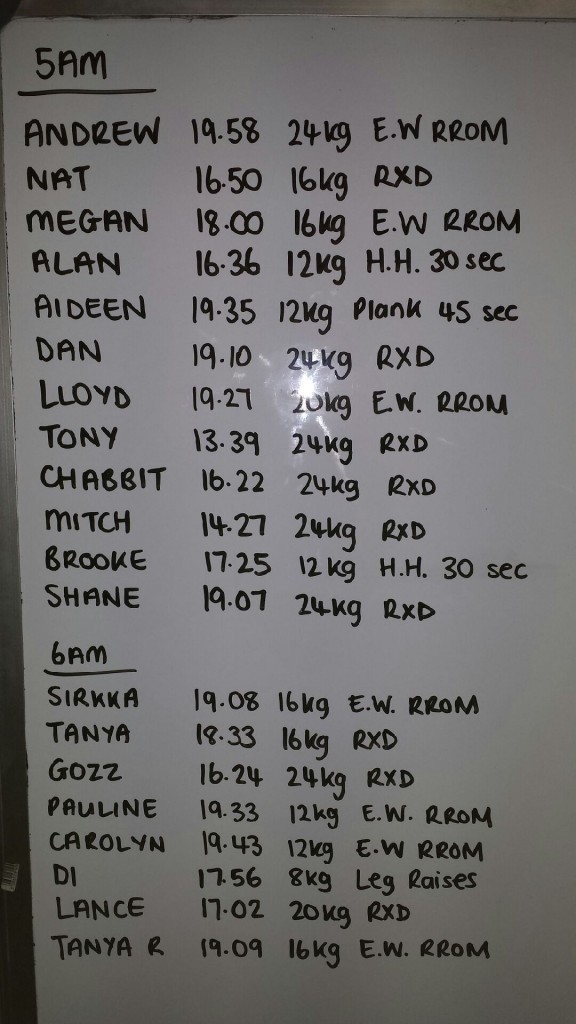 5AM
ANDREW 19.58 24kg E.W RROM
NAT 16.50 16kg RXD
MEGAN 18.00 16kg E.W RROM
ALAN 16.36 12kg H.H. 30 sec
AIDEEN 19.35 12kg Plank 45 sec
DAN 19.10 24kg RXD
LLOYD 19.27 20kg E.W. RROM
TONY 13.39 24kg RXD
CHABBIT 16.22 24kg RXD
MITCH 14.27 24kg RXD
BROOKE 17.25 12kg H.H. 30 sec
SHANE 19.07 24kg RXD
6AM
SIRKKA 19.08 16kg E.W. RROM
TANYA 18.33 16kg RXD
GOZZ 16.24 24kg RXD
PAULINE 19.33 12kg E.W. RROM
CAROLYN 19.43 12kg E.W RROM
DI 17.56 8kg Leg Raises
LANCE 17.02 20kg RXD
TANYA R 19.09 16kg E.W. RROM